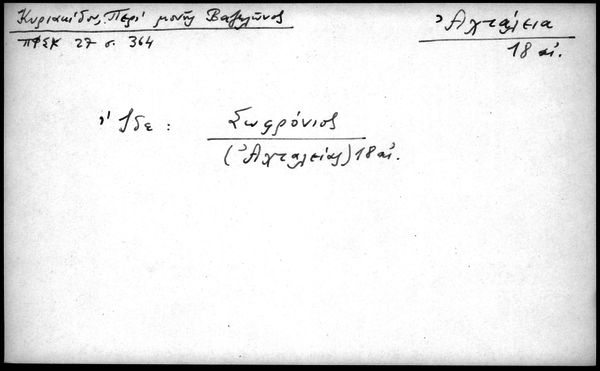 Κυριακίδος, Περί μονῆς Βαζελῶνος
ΠΦΣΚ 27 σ. 364
Ἀχταλεια
18 αἰ.
Ἴδε : Σωφρόνιος
(Ἀχταλείας) 18 αἰ.